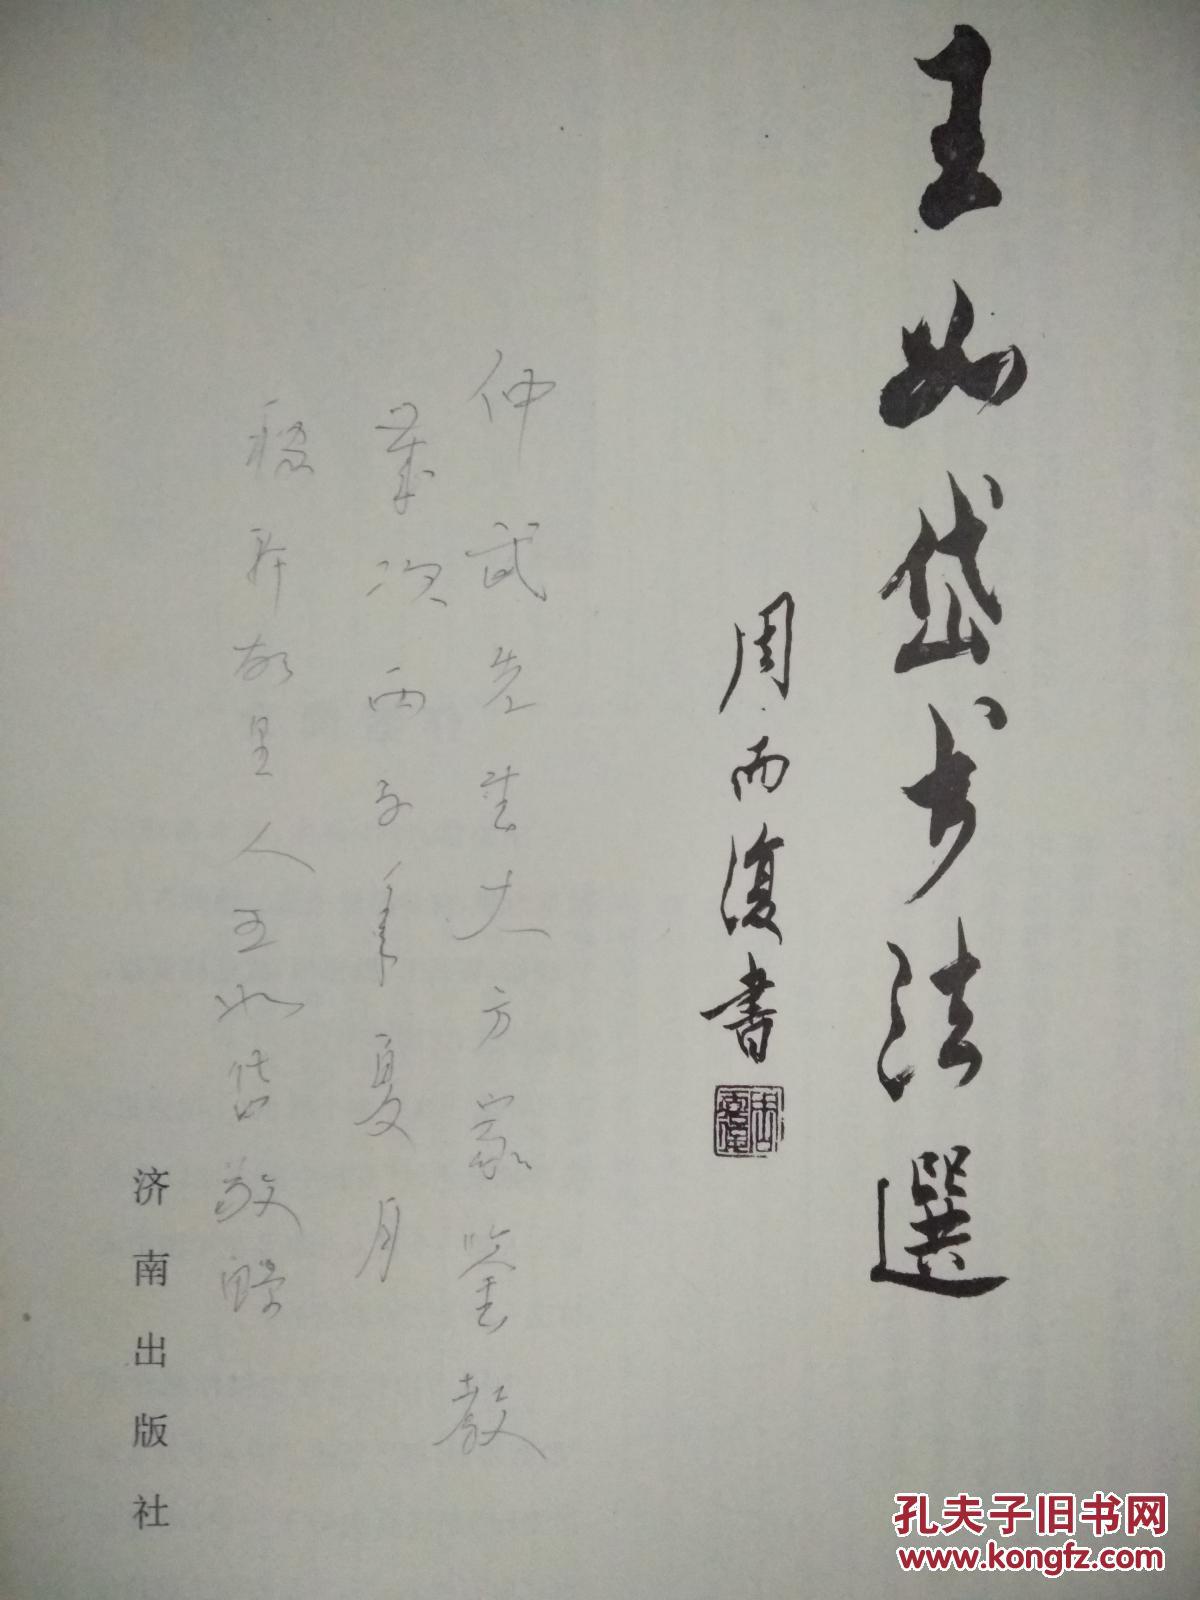 王如岱书法選
周而復書
仲武先生大方家鉴教
歲次丙子年夏月
稼轩故里人王如岱敬赠
济南出版社
孔夫子旧书网
www.kongfz.com